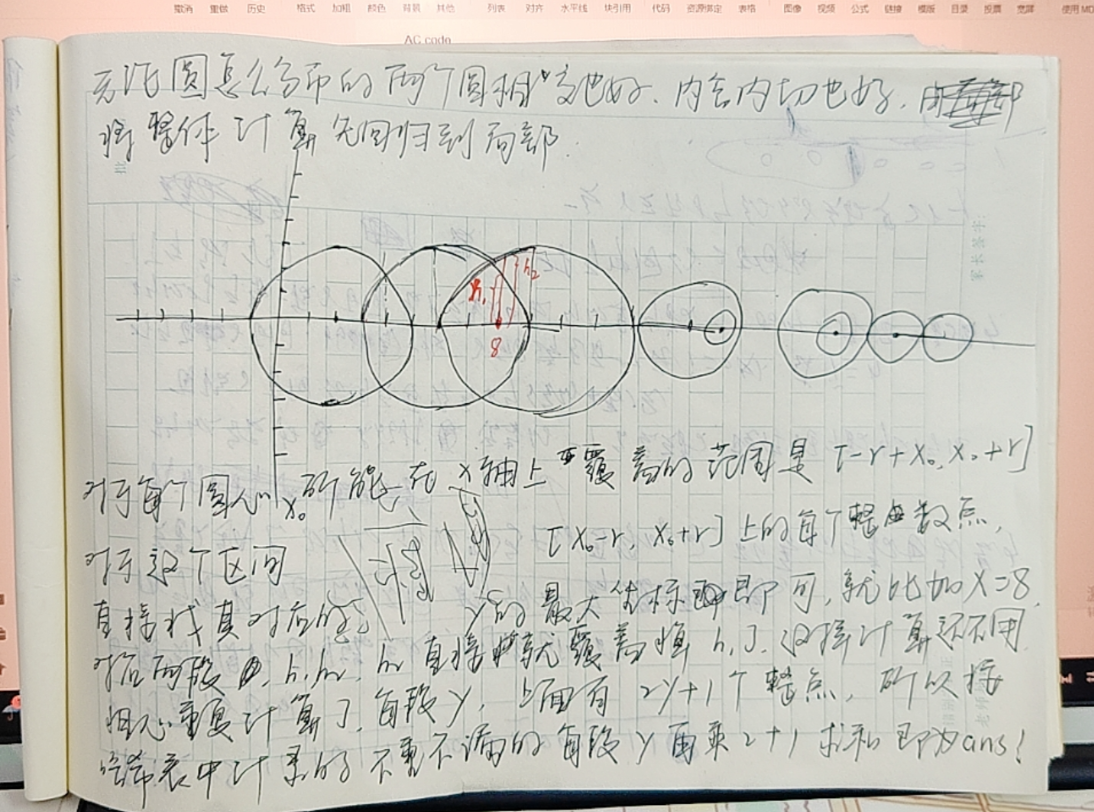 撤消 重做 历史 格式 加粗 颜色 背景 其他 列表 对齐 水平线 块引用 代码 资源绑定 表格 图像 视频 公式 链接 模版 目录 投票 宽屏 使用MD
AC code
无论圆怎么分布的两个圆相交也好、内含内切也好,
将整体计算先回归到局部.
h₁ h₂
8
对于每个圆心 x₀ 所能在x轴上覆盖的范围是[-r+x₀, x₀+r]
对于这个区间 [x₀-r, x₀+r]上的每个整数点,
直接找其对应的 y的最大坐标即可, 就比如x=8,
对应两段 h₁h₂, h₂直接就覆盖掉h₁了, 这样计算还不用
担心重复计算了, 每段y, 上面有2y+1个整点, 所以接
哈希表中计录的不重不漏的每段y再乘2+1求和即为ans!